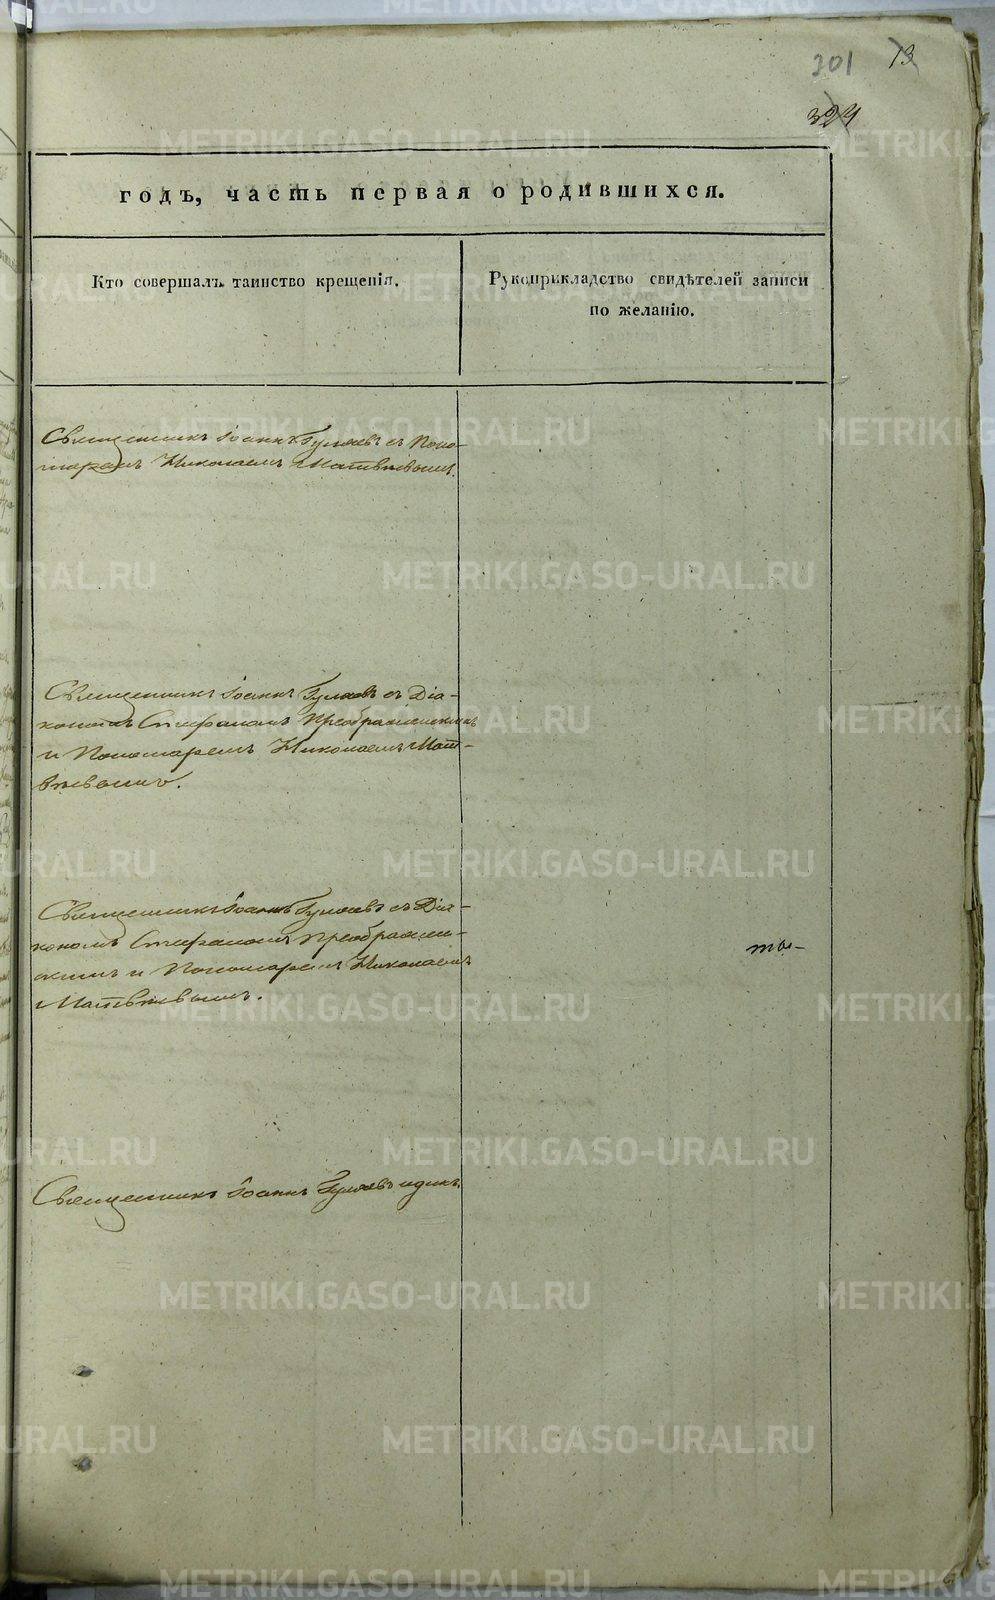 301 13
324
годъ, часть первая о родившихся.
Кто совершалъ таинство крещенія.
Рукоприкладство свидѣтелей записи
по желанію.
Священникъ Іоаннъ Гуляевъ съ Поно-
маремъ Николаемъ Матвѣевымъ.
Священникъ Іоаннъ Гуляевъ съ Діа-
кономъ Стефаномъ Преображенскимъ
и Пономаремъ Николаемъ Мат-
вѣевымъ.
Священникъ Іоаннъ Гуляевъ съ Діа-
кономъ Стефаномъ Преображен-
скимъ и Пономаремъ Николаемъ
Матвѣевымъ.
ты-
Священникъ Іоаннъ Гуляевъ одинъ.
METRIKI.GASO-URAL.RU